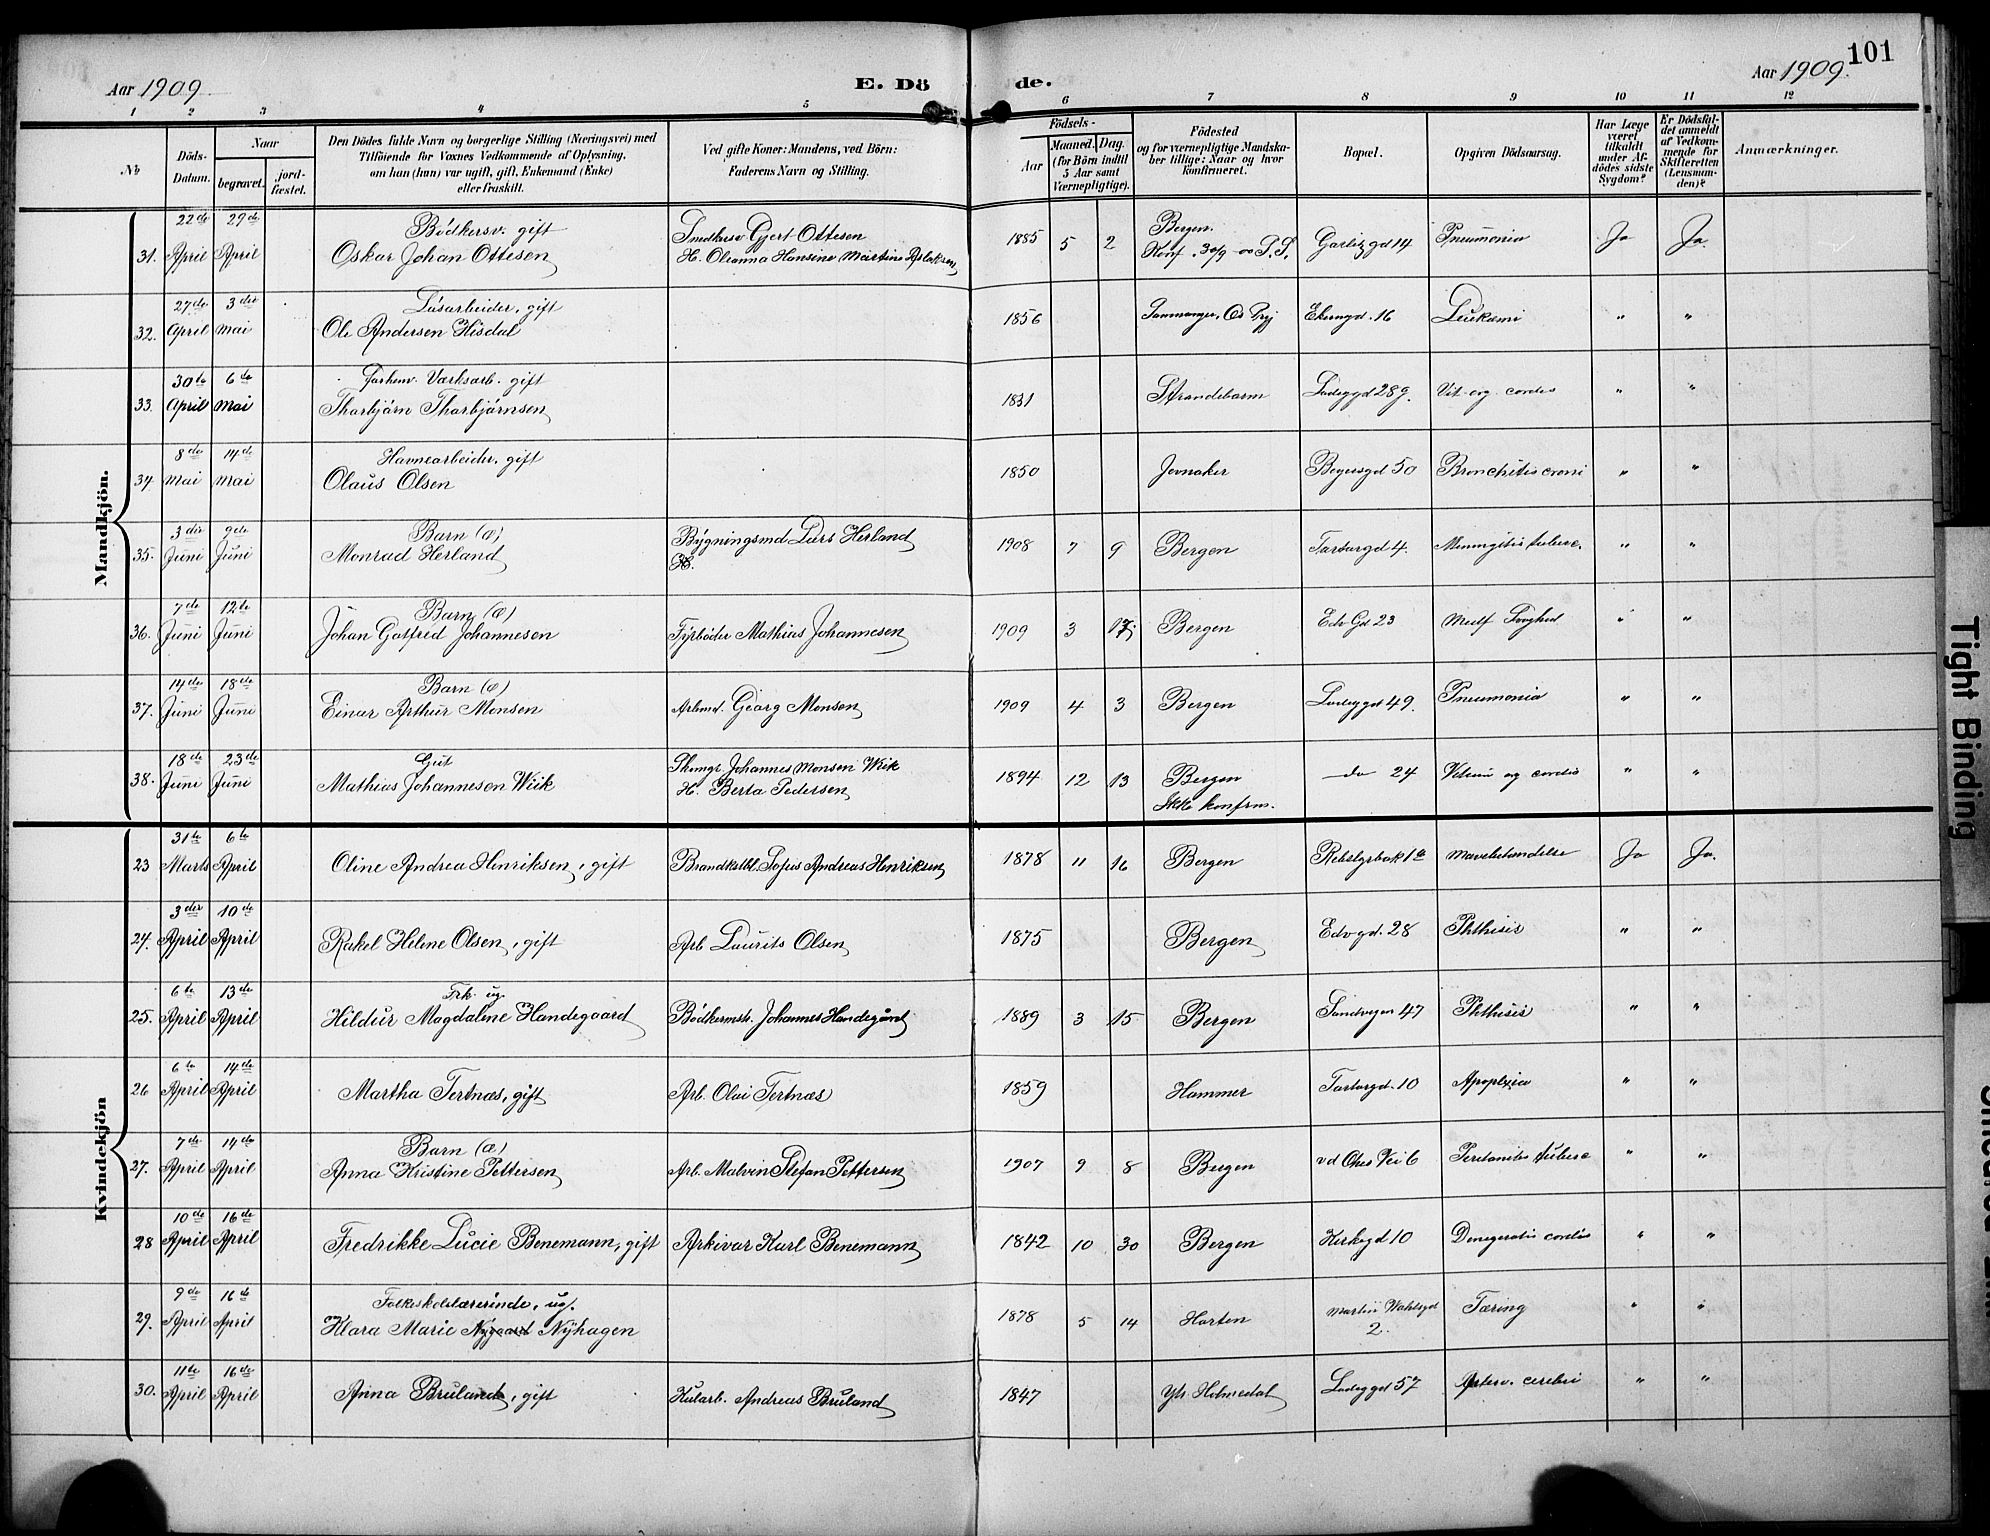 101
Aar 1909
E. Dö de.
Aar 1909.
1 2 3 4 5 6 7 8 9 10 11 12
No
Döds-Datum.
Naar
begravet.
jord-fæstet.
Den Dödes fulde Navn og borgerlige Stilling (Næringsvei) med
Tilföiende for Voxnes Vedkommende af Oplysning,
om han (hun) var ugift, gift, Enkemand (Enke)
eller fraskilt.
Ved gifte Koner: Mandens, ved Börn:
Faderens Navn og Stilling.
Födsels-
Aar
Maaned. Dag.
(for Börn indtil
5 Aar samt
Værnepligtige).
Födested
og for værnepligtige Mandska-
ber tillige: Naar og hvor
konfirmeret.
Bopæl.
Opgiven Dödsaarsag.
Har Læge
været
tilkaldt
under Af-
dödes sidste
Sygdom?
Er Dödsfal-
det anmeldt
af Vedkom-
mende for
Skifteretten
(Lensman-
den)?
Anmærkninger.
Mandkjön.
31. 22de April 29de April Bödkersv. gift
Oskar Johan Ottesen Gjert Ottesen
H. Olianna Hansine Martine Aslaksen 1885 5 2 Bergen.
Konf. 30/9-00 Gd 14 Pneumonia Ja Ja.
32. 27de April 3die Mai Lösarbeider, gift
Ole Andersen Hisdal 1856 Samnanger, Os Prgj Ekerngd. 16 Leukæmi " "
33. 30te April 6te Mai Værksarb. gift
Thorbjörn Thorbjörnsen 1831 Strandebarm Ladeggd 28 g. Vit. org. cordis " "
34 8de Mai 14de Mai Havnearbeider, gift
Olaus Olsen 1850 Jevnaker 50 Bronchitis croni " "
35. 3die Juni 9de Juni Barn (æ)
Monrad Herland Bygningsmd Lars Herland
H. 1908 7 9 Bergen Tartargd 4. Meningitis tuberc. " "
36. 7de Juni 12te Juni Barn (æ)
Johan Gotfred Johannesen Fyrböder Mathias Johannesen 1909 3 Bergen Edv Gd 23 Medf Svaghed " "
37. 14de Juni 18de Juni Barn (æ)
Einar Arthur Monsen Arbmd. Georg Monsen 1909 4 3 Bergen Ladeggd 49. Pneumonia " "
38. 18de Juni 23de Juni Gut
Mathias Johannesen Wiik Johannes Monsen Wiik
H. Berta Pedersen 1894 12 13 Bergen
Ikke konfrm. do 24 Vitium org cordis " "
Kvindekjön
23 31te Marts 6te April Oline Andrea Henriksen, gift Sofus Andreas Henriksen 1878 11 16 Bergen Mavebetændelse Ja Ja.
24. 3die April 10de April Rakel Helene Olsen, gift Arb Laurits Olsen 1875 Bergen Edv gd. 28 Phthisis " "
25. 6te April 13de April Frk. ug.
Hildur Magdalene Handegaard Bödkermstr. Johannes Handegård 1889 3 15 Bergen Sandvegen 47 Phthisis " "
26 6te April 14de April Martha Tertnæs, gift Arb. Olai Tertnæs 1859 Hammer Tartargd. 10 Apoplexia " "
27. 7de April 14de April Barn (æ)
Anna Kristine Pettersen Arb. Malvin Stefan Pettersen 1907 9 8 Bergen Vei 6 Peritonitis tuberc " "
28 10de April 16de April Fredrikke Lucie Benemann, gift Arkivar Karl Benemann 1842 10 30 Bergen Kirkegd 10 Denegeratio cordis " "
29. 9de April 16de April Folkeskolelærerinde, ug.
Klara Marie Nygaard Nyhagen 1878 5 14 Horten Martin Wahlsgd
2. Tæring " "
30. 11te April 16de April Anna Bruland, gift Kularb. Andreas Bruland 1847 Ytr Holmedal Ladeggd 57 cerebri " "
Tight Binding